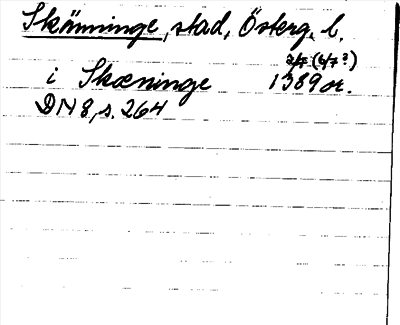 Skänninge, stad, Österg. l.
i Skæninge 2/7 (6/7?) 1389 or.
DN 8, s. 264